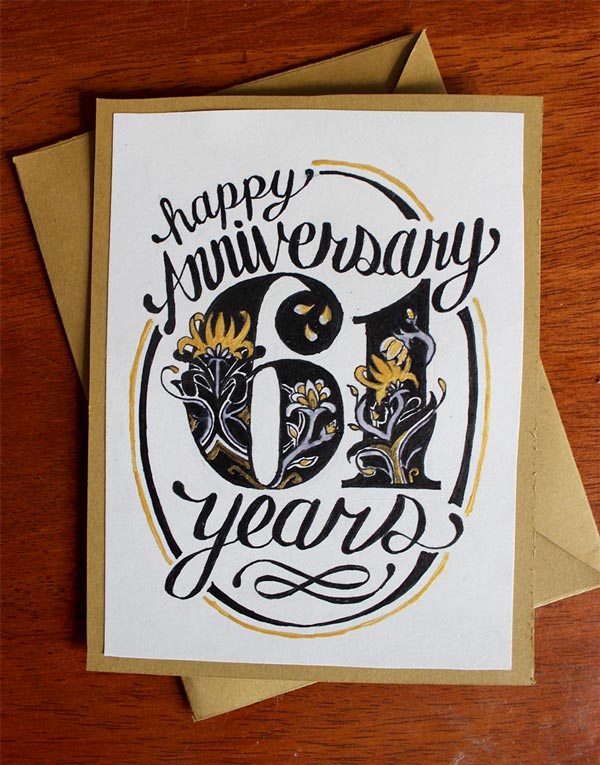 happy
Anniversary
61
years